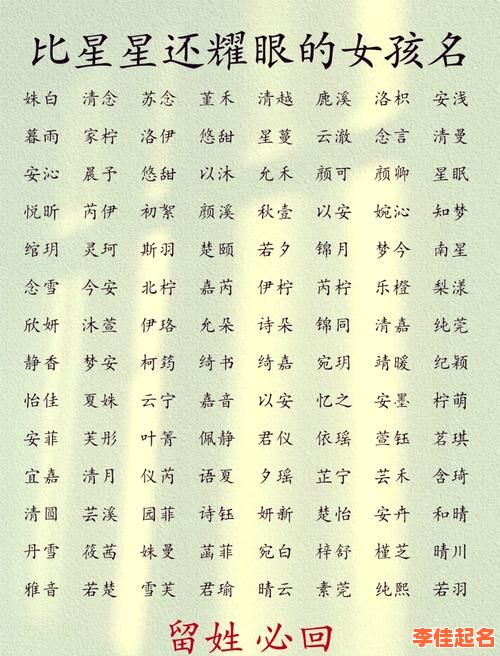 比星星还耀眼的女孩名
姝白 清念 苏念 堇禾 清越 鹿溪 洛枳 安浅
暮雨 家柠 洛伊 悠甜 星蔓 云澈 念言 清曼
安沁 晨予 悠甜 以沐 允禾 颜可 颜卿 星眠
悦昕 芮伊 初絮 颜溪 秋壹 以安 婉沁 知梦
绾玥 灵珂 斯羽 楚颐 若夕 锦月 梦今 南星
念雪 今安 北柠 嘉芮 伊柠 芮柠 乐橙 梨漾
欣妍 沐萱 伊珞 允朵 诗朵 锦同 清嘉 纯莞
静香 梦安 柯筠 绮书 绮嘉 宛玥 靖暖 纪颖
怡佳 夏姝 云宁 嘉音 以安 忆之 安墨 柠萌
安菲 芙彤 叶箐 佩静 君仪 依瑶 萱钰 茗琪
宜嘉 清月 仪芮 语夏 夕瑶 芷宁 芸禾 含琦
清圆 芸溪 园菲 诗钰 妍新 楚怡 安卉 和晴
丹雪 筱茜 姝曼 菡菲 宛白 梓舒 槿芝 晴川
雅音 若楚 雪芙 君瑜 晴云 素莞 纯熙 若羽
留姓必回
李佳起名